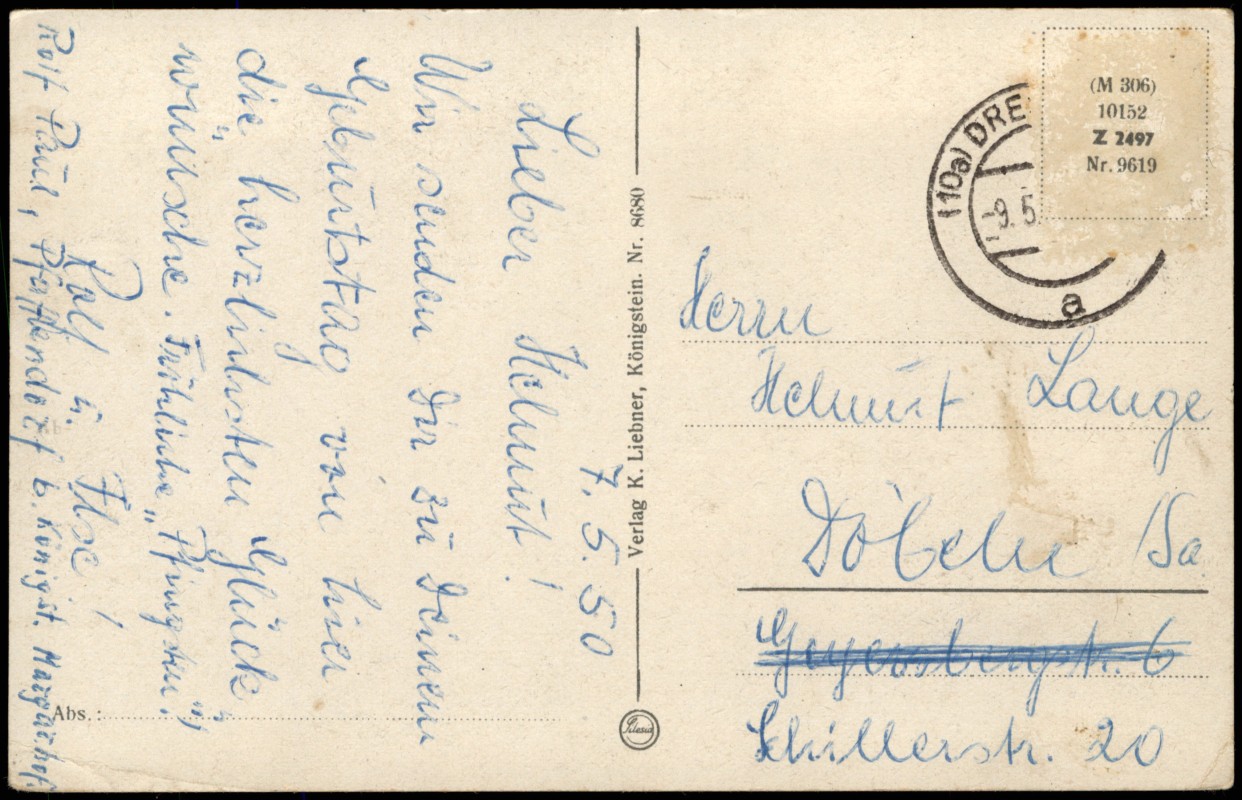 7. 5. 50
Lieber Helmut!
Wir senden Dir zu Deinem
Geburtstag von hier
die herzlichsten Glück-
wünsche. Fröhliche „Pfingsten“!
Rolf u. Ilse!
Rolf Paul, Pfaffendorf b. Königst. Margar.hof.
Abs.:
Verlag K. Liebner, Königstein. Nr. 8680
Silesia
(M 306)
10152
Z 2497
Nr. 9619
(10a) DRE
-9. 5
a
Herrn
Helmut Lange
Döbeln /Sa
Geyersbergstr. 6
Schillerstr. 20